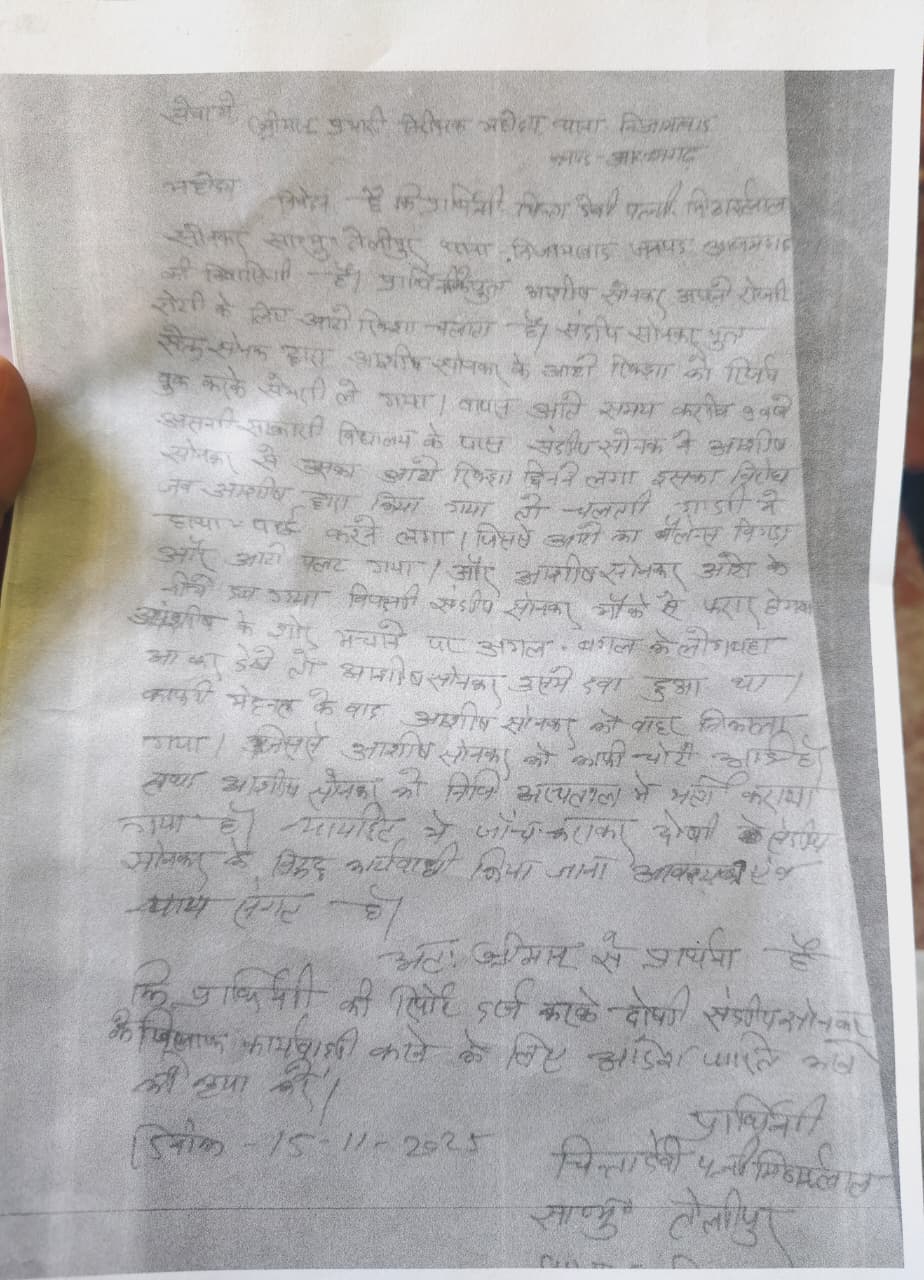 सेवा में
श्रीमान प्रभारी निरीक्षक महोदय थाना निजामबाद
जनपद-आजमगढ़
महोदय
निवेदन है कि प्रार्थिनी चिन्ता देवी पत्नी
सोनकर तेलीपुर थाना निजामबाद जनपद आजमगढ़
की निवासिनी है। प्रार्थिनी पुत्र आशीष सोनकर अपनी रोजी
रोटी के लिए आटो रिक्शा चलाता है। संदीप सोनकर पुत्र
सोनकर द्वारा आशीष सोनकर के आटो रिक्शा को रिर्जव
बुक करके ले गया। वापस आते समय करीब 9 बजे
असनी सरकारी विद्यालय के पास संदीप सोनकर ने आशीष
सोनकर से उसका आटो रिक्शा छिनने लगा इसका विरोध
जब आशीष द्वारा किया गया तो चलती गाडी मे
हाथा-पाई करने लगा। जिससे आटो का बैलेन्स बिगड़ा
और आटो पलट गया। और आशीष सोनकर आटो के
नीचे दब गया विपक्षी संदीप सोनकर मौके से फरार होगया
आशीष के शोर मचाने पर अगल-बगल के लोग वहा
आकर देखे तो आशीष सोनकर उसमे दबा हुआ था।
काफी मेहनत के बाद आशीष सोनकर को बाहर निकाला
गया। जिससे आशीष सोनकर को काफी चोटे आई है
तथा आशीष सोनकर को निजि अस्पताल मे भर्ती कराया
गया है। न्यायहित मे जाँच कराकर दोषी संदीप
सोनकर के विरुद्ध कार्यवाही किया जाना आवश्यक एंव
न्याय संगत है।
अतः श्रीमान से प्रार्थना है
कि प्रार्थिनी की रिपोर्ट दर्ज करके दोषी संदीप सोनकर
के खिलाफ कार्यवाही करने के लिए आदेश पारित करने
की कृपा करें।
दिनांक-15-11-2025
प्रार्थिनी
चिन्ता देवी पत्नी
तेलीपुर